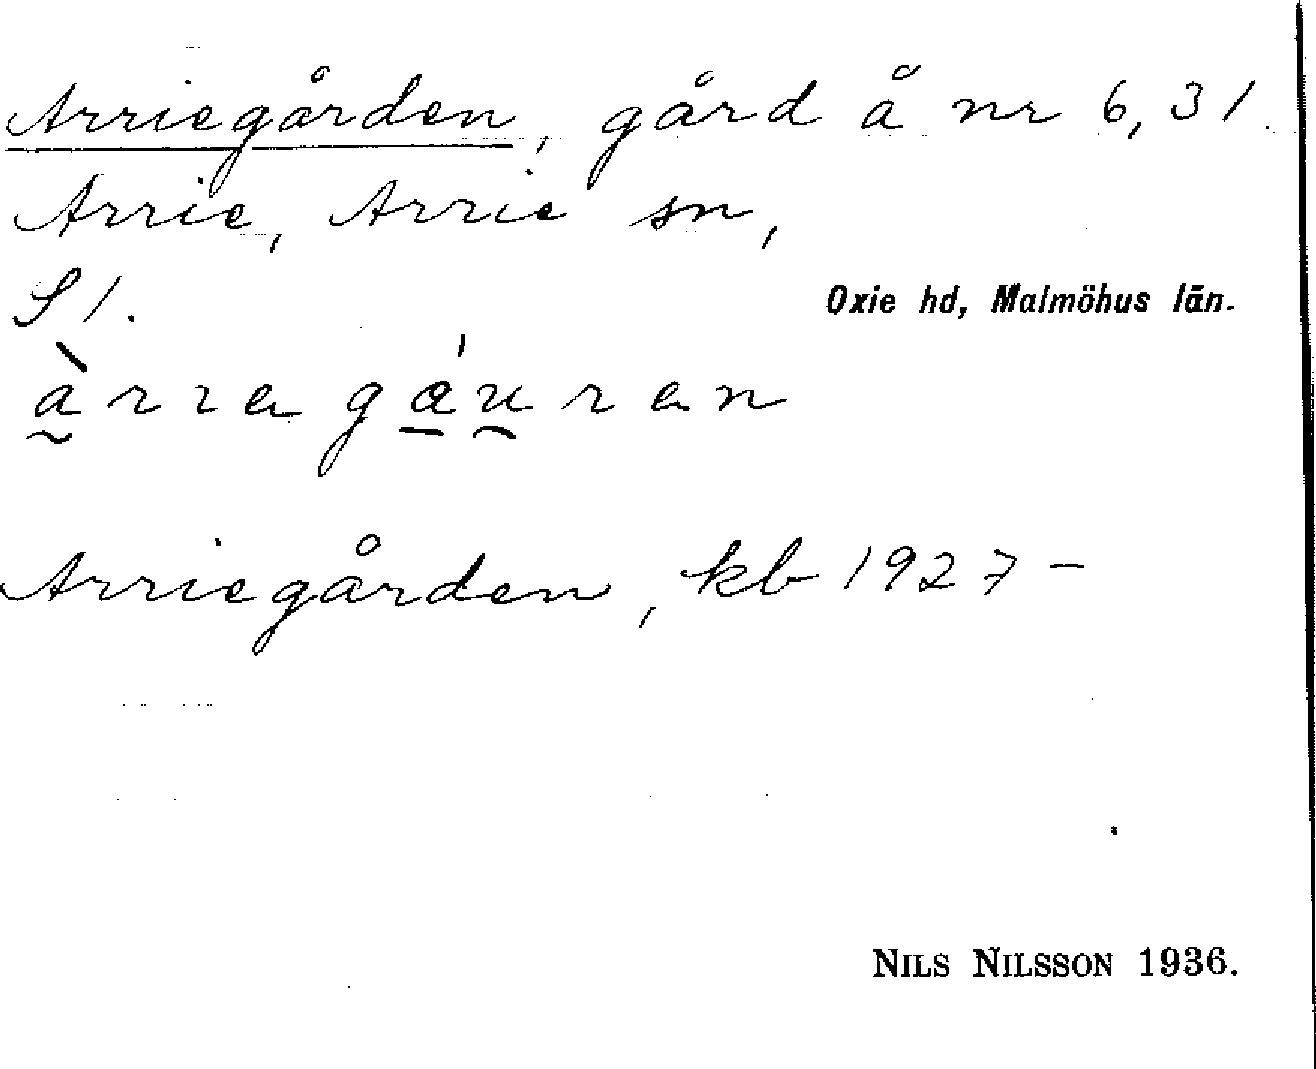 Arriegården, gård å nr 6, 31.
Arrie, Arrie sn,
S 1.
Oxie hd, Malmöhus län.
àrragáuran
Arriegården, kb 1927 –
NILS NILSSON 1936.